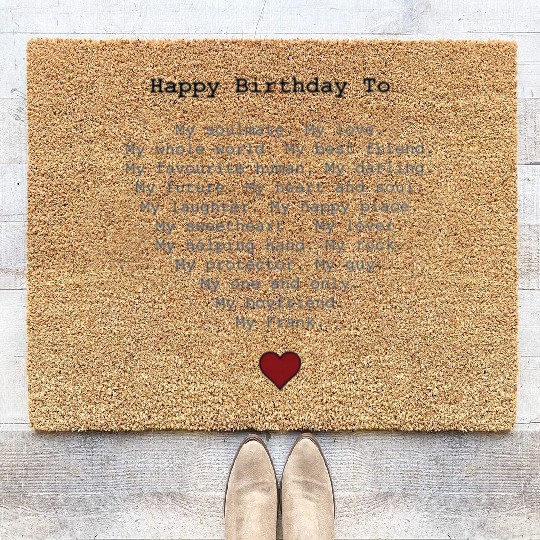 Happy Birthday To
My soulmate. My love.
My whole world. My best friend.
My favourite human. My darling.
My future. My heart and soul.
My laughter. My happy place.
My sweetheart. My lover.
My helping hand. My rock.
My protector. My guy.
My one and only.
My boyfriend.
My Frank.